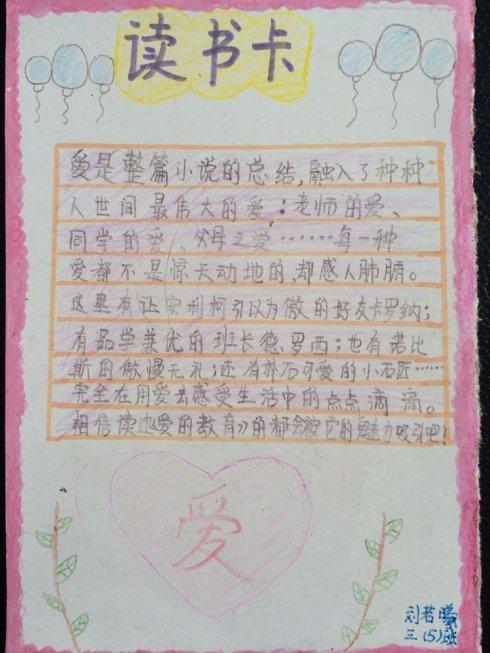 读书卡
爱是整篇小说的总结,融入了种种
人世间最伟大的爱:老师的爱、
同学的爱、父母之爱……每一种
爱都不是惊天动地的,却感人肺腑。
这里有让安利柯引以为傲的好友卡罗纳;
有品学兼优的班长德罗西;也有若比
斯的傲慢无礼;还有朴石可爱的小石匠……
完全在用爱去感受生活中的点点滴滴。
相信读过爱的教育》的都会被它的魅力吸引吧!
爱
刘若曦
三(5)班